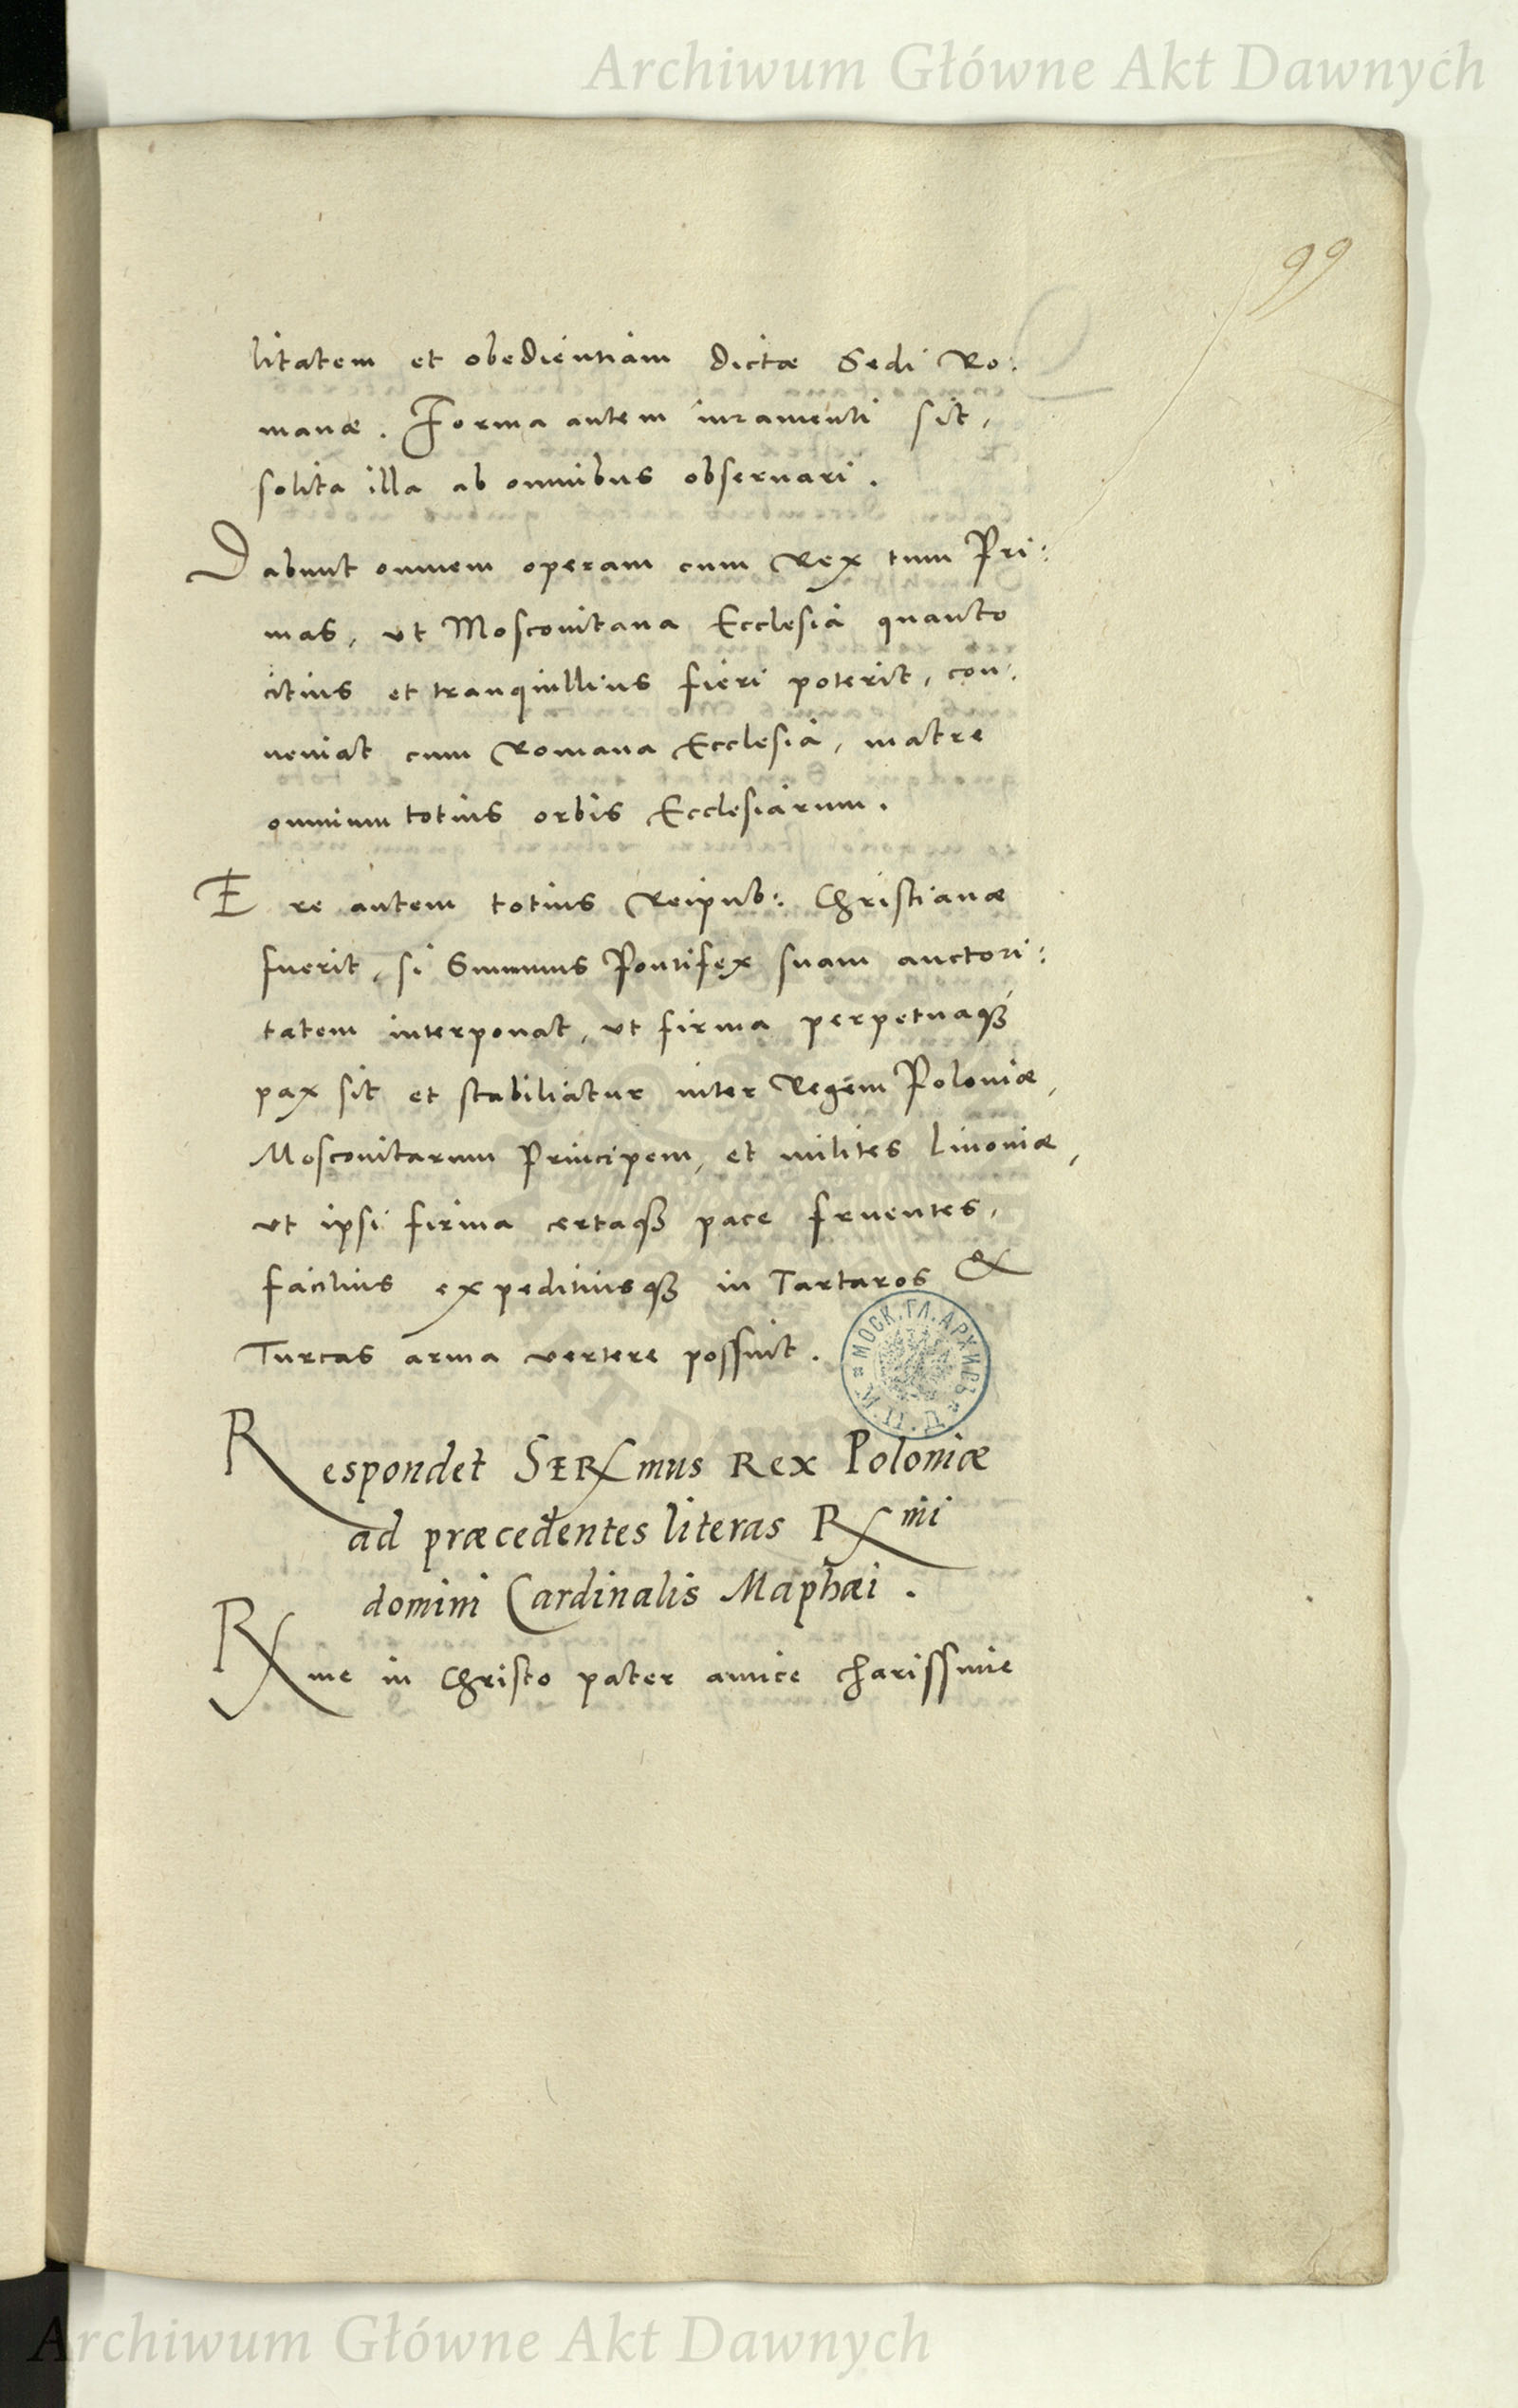 Archiwum Główne Akt Dawnych
99
litatem et obedientiam dictæ Sedi Ro:
manæ. Forma autem iuramenti sit,
solita illa ab omnibus obseruari.
Dabunt omnem operam cum Rex tum Pri:
mas, ut Moscouitana Ecclesia quanto
citius et tranquillius fieri poterit, con:
ueniat cum Romana Ecclesia, matre
omnium totius orbis Ecclesiarum.
E re autem totius Reipub: Christianæ
fuerit, si Summus Pontifex suam auctori:
tatem interponat, ut firma perpetuaqȝ
pax sit et stabiliatur inter Regem Poloniæ,
Moscouitarum Principem, et milites Liuoniæ,
ut ipsi firma certaqȝ pace fruentes,
facilius expeditiusqȝ in Tartaros &
Turcas arma vertere possint.
МОСК. ГЛ. АРХИВЪ
Respondet SERmus Rex Poloniæ
ad præcedentes literas Rmi
domini Cardinalis Maphæi.
Rme in Christo pater amice charissime
Archiwum Główne Akt Dawnych